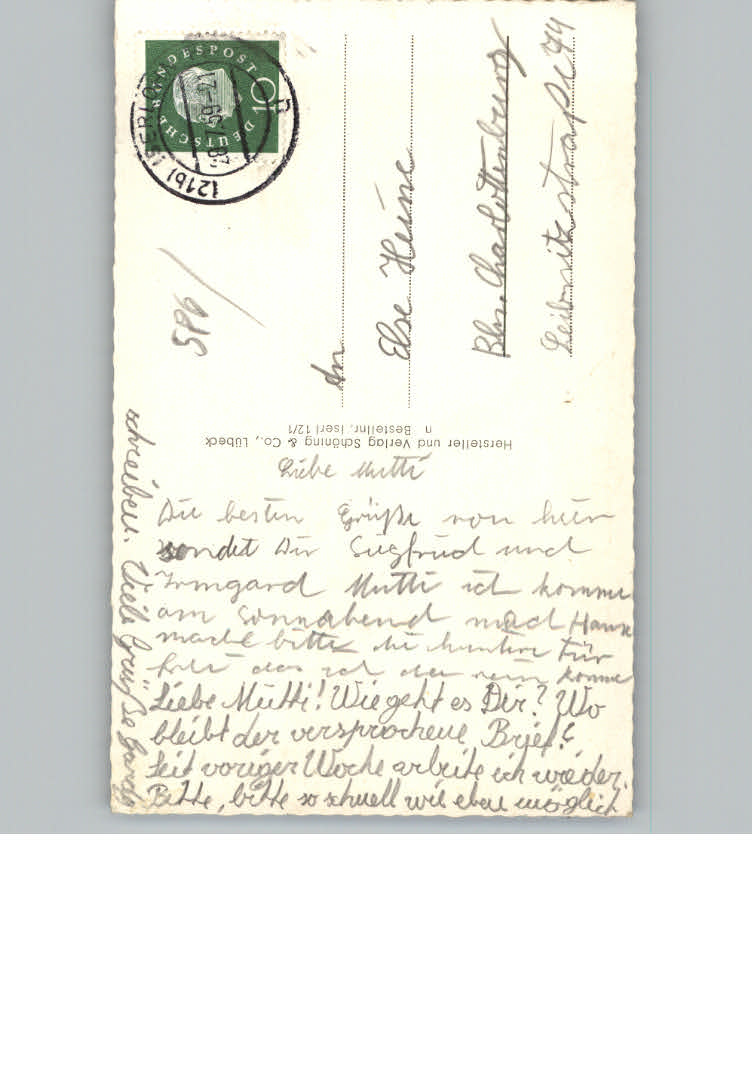 DEUTSCHE BUNDESPOST
10
(21b) ISERLO
586
An
Else Heine
Bln. Charlottenburg
Leibnitzstraße 44
Hersteller und Verlag Schöning & Co., Lübeck
n Bestellnr. Iserl 12/1
Liebe Mutti
Die besten Grüße von hier
sendet Dir Siegfried und
Irmgard Mutti ich komme
am Sonnabend nach Hause
mache bitte die hintere Tür
das ich da rein komme
Liebe Mutti! Wie geht es Dir? Wo
bleibt der versprochene Brief?
Seit voriger Woche arbeite ich wieder.
Bitte, bitte so schnell wie eben möglich
schreiben. Viele Grüße